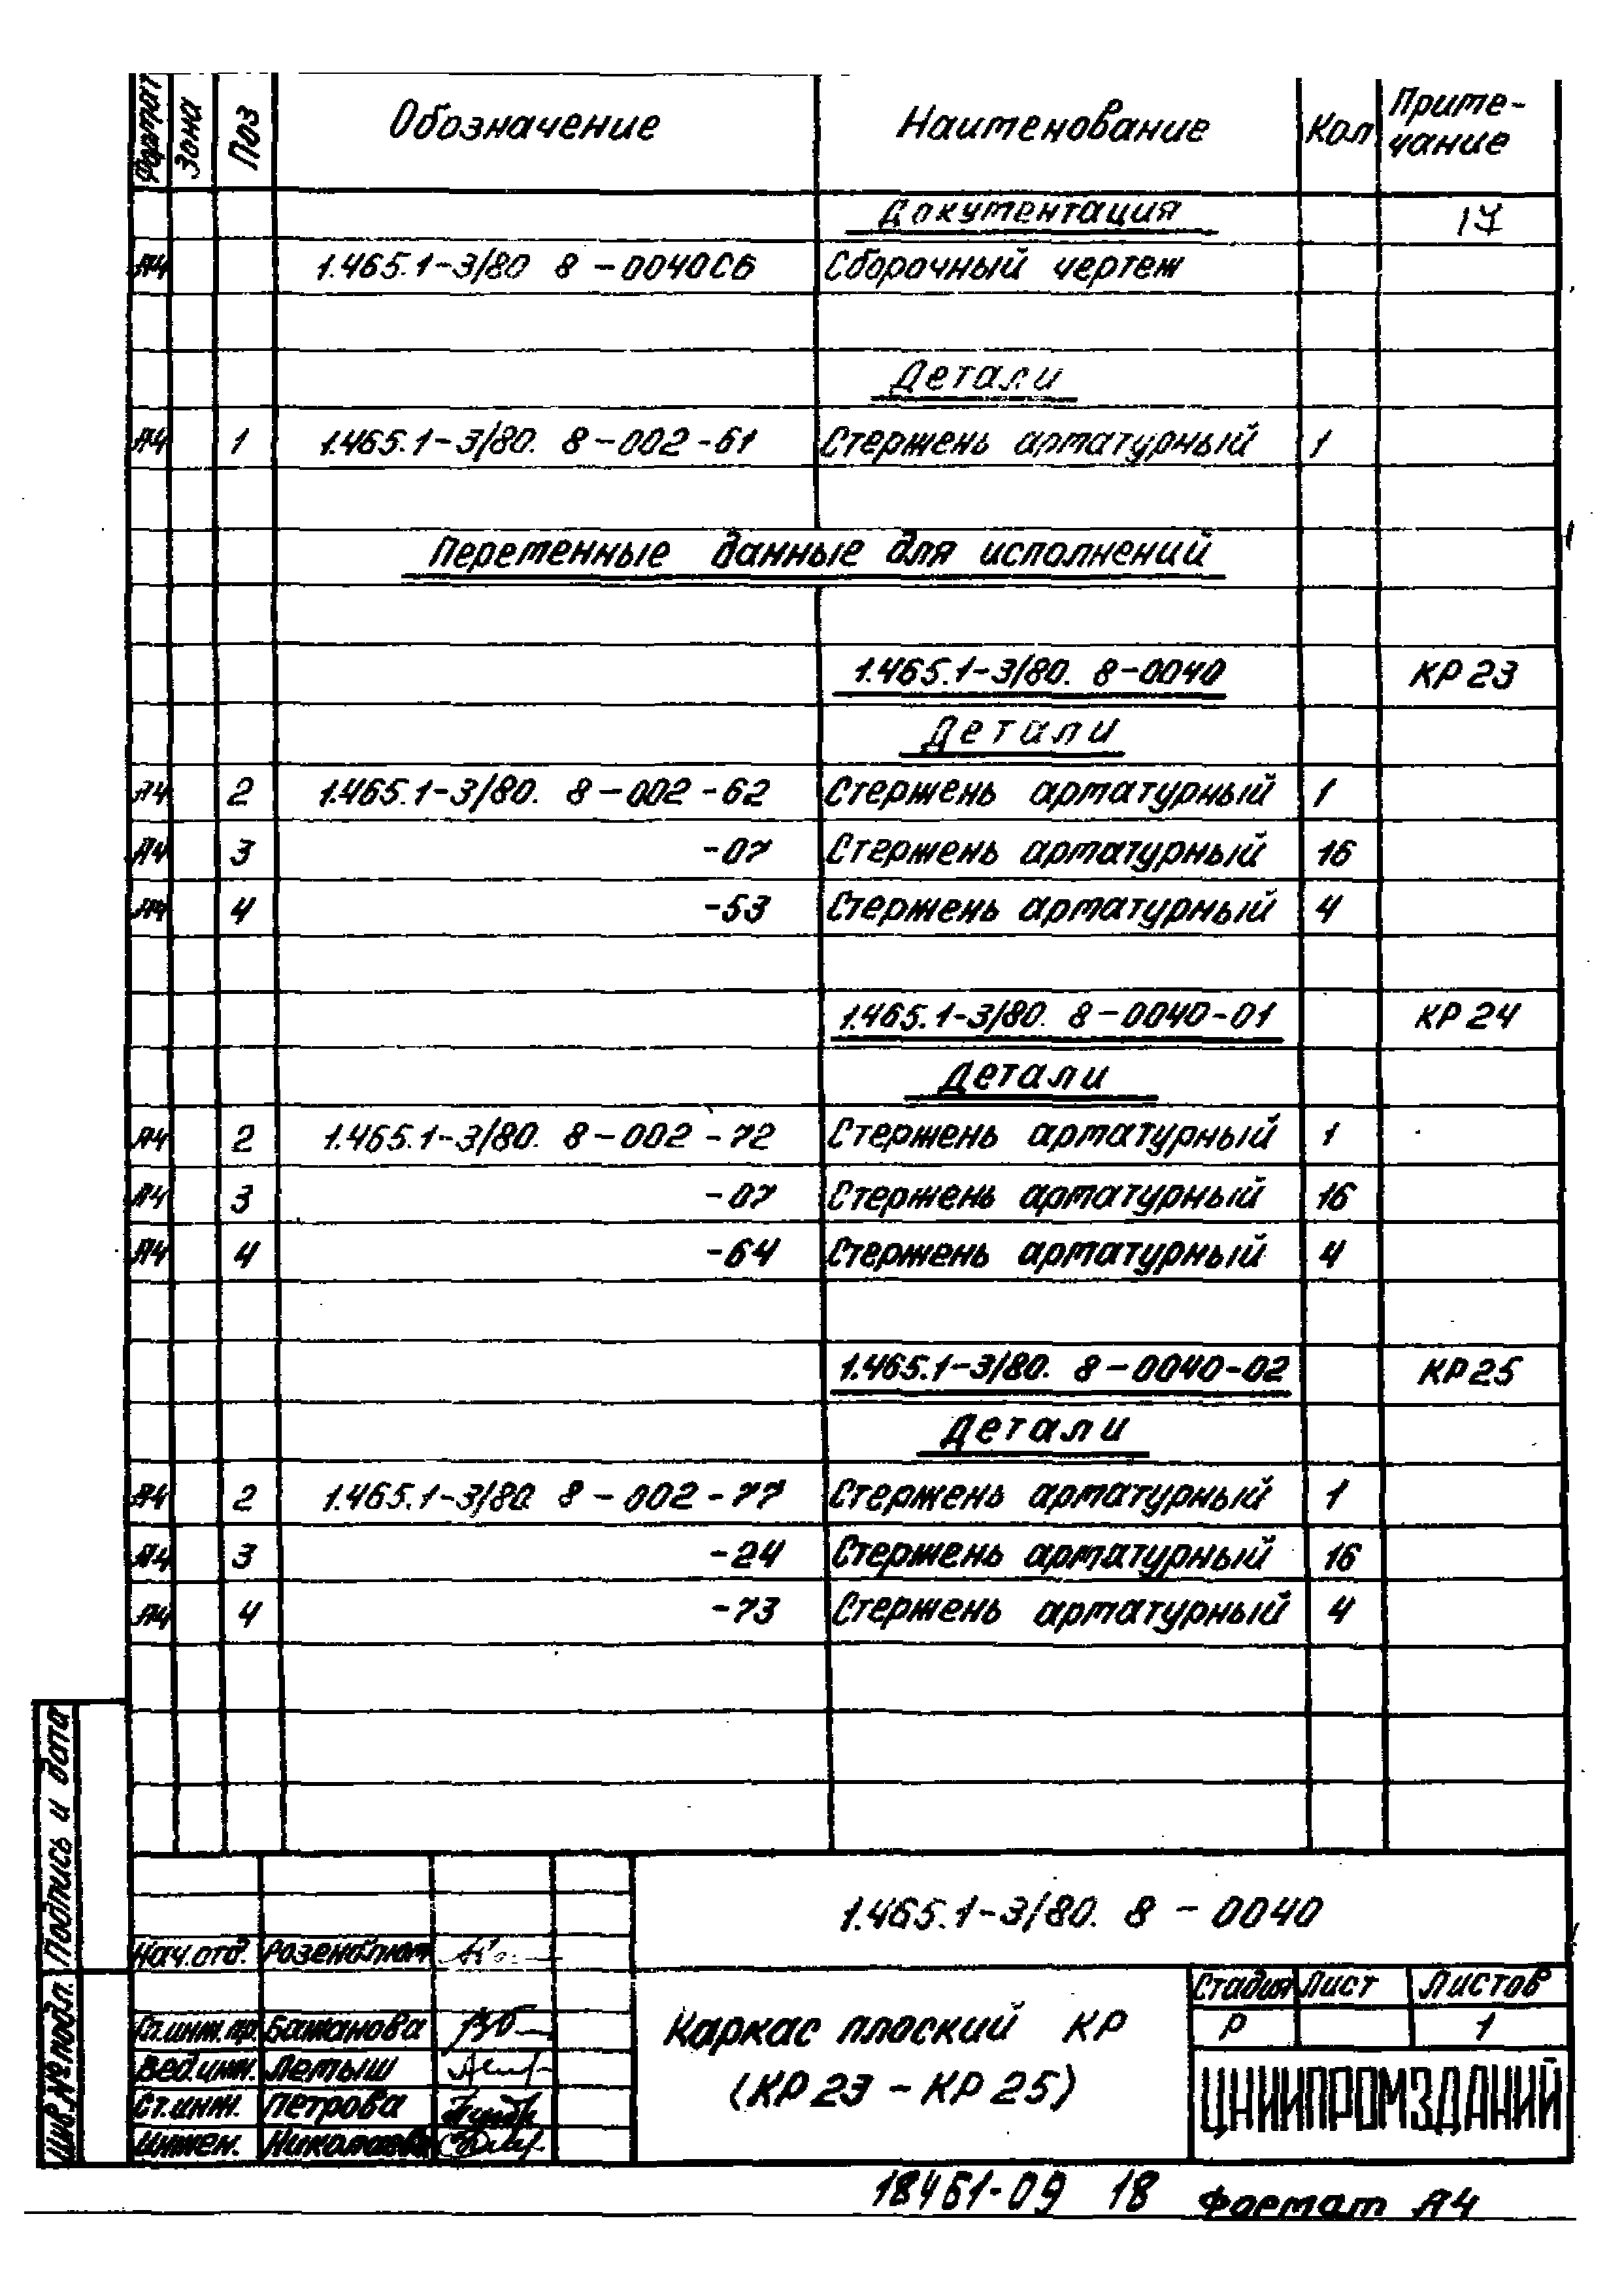 Формат Зона Поз Обозначение Наименование Кол Приме-
чание
Документация 17
А4 1.465.1-3/80 8-0040СБ Сборочный чертеж
Детали
А4 1 1.465.1-3/80. 8-002-61 Стержень арматурный 1
Переменные данные для исполнений
1.465.1-3/80. 8-0040 КР23
Детали
А4 2 1.465.1-3/80. 8-002-62 Стержень арматурный 1
А4 3 -07 Стержень арматурный 16
А4 4 -53 Стержень арматурный 4
1.465.1-3/80. 8-0040-01 КР24
Детали
А4 2 1.465.1-3/80. 8-002-72 Стержень арматурный 1
А4 3 -07 Стержень арматурный 16
А4 4 -64 Стержень арматурный 4
1.465.1-3/80. 8-0040-02 КР25
Детали
А4 2 1.465.1-3/80. 8-002-77 Стержень арматурный 1
А4 3 -24 Стержень арматурный 16
А4 4 -73 Стержень арматурный 4
Подпись и дата
Инв.№ подл.
1.465.1-3/80. 8-0040
Нач.отд. Розенблюм
Гл.инж.пр. Баманова
Вед.инж. Лемыш
Ст.инж. Петрова
Инжен. Николаева
Каркас плоский КР
(КР23-КР25)
Стадия Лист Листов
Р 1
ЦНИИПРОМЗДАНИЙ
18461-09 18 Формат А4